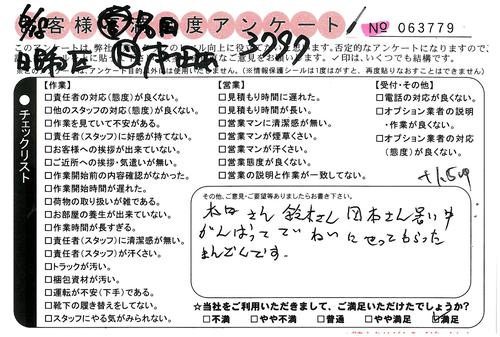 お客様満足度アンケート
No 063779
3797
※このアンケートは、目的以外は使用いたしません。(※情報保護シールは1度はがすと、再度貼りなおすことはできません)
チェックリスト
【作業】
□責任者の対応(態度)が良くない。
□他のスタッフの対応(態度)が良くない。
□作業を見ていて不安がある。
□責任者(スタッフ)に好感が持てない。
□お客様への挨拶が出来ていない。
□ご近所への挨拶・気遣いが無い。
□作業開始前の内容確認がなかった。
□作業開始時間が遅れた。
□荷物の取り扱いが雑である。
□お部屋の養生が出来ていない。
□作業時間が長すぎる。
□責任者(スタッフ)に清潔感が無い。
□責任者(スタッフ)が汗くさい。
□トラックが汚い。
□梱包資材が汚い。
□運転が不安(下手)である。
□靴下の履き替えをしてない。
□スタッフにやる気がみられない。
【営業】
□見積もり時間に遅れた。
□見積もり時間が長い。
□営業マンに清潔感が無い。
□営業マンが煙草くさい。
□営業マンが汗くさい。
□営業態度が良くない。
□営業の説明と作業が一致してない。
【受付・その他】
□電話の対応が良くない。
□オプション業者の説明
・作業が良くない。
□オプション業者の対応
(態度)が良くない。
その他、ご意見・ご要望等ありましたらお書き下さい。
本田さん 鈴木さん 岡本さん暑い中
がんばってていねいにやってもらった
☆当社をご利用いただきまして、ご満足いただけたでしょうか?
□不満 □やや不満 □普通 □やや満足 ☑満足